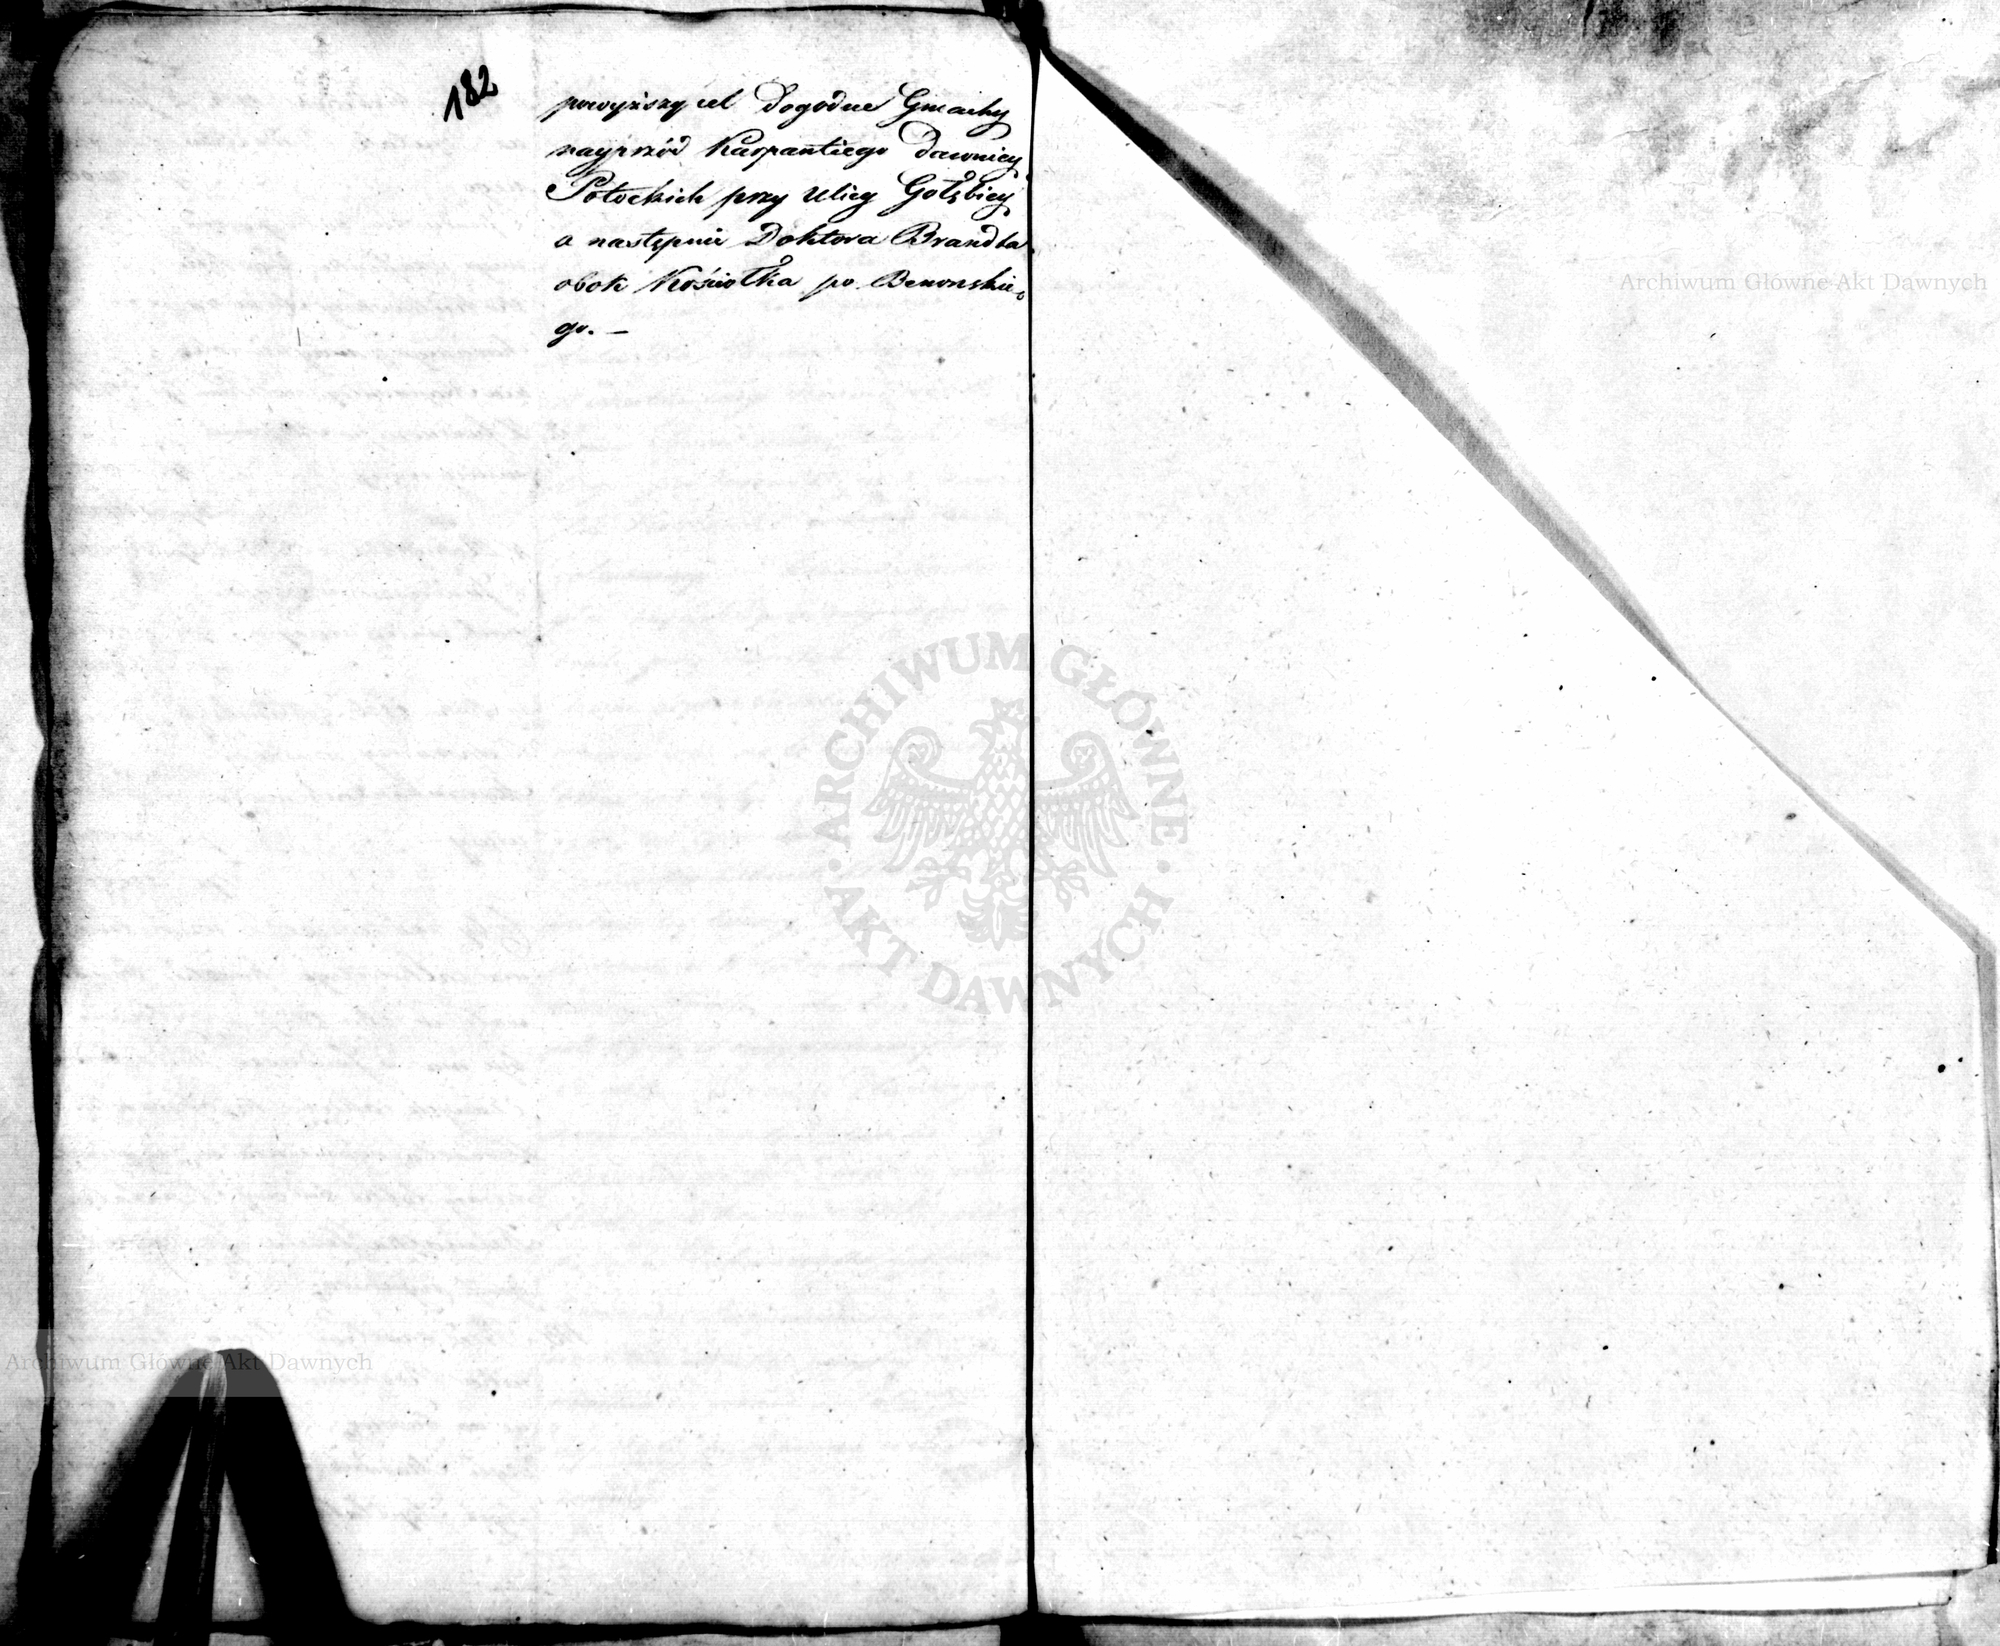 182
powyższy cel dogodne Gmachy
nayprzód Karpantiego dawniey
Potockich przy Ulicy Gołębiey
a następnie Doktora Brandta
obok Kościołka po Benonskie-
go. —
Archiwum Główne Akt Dawnych
ARCHIWUM GŁÓWNE · AKT DAWNYCH ·
Archiwum Główne Akt Dawnych